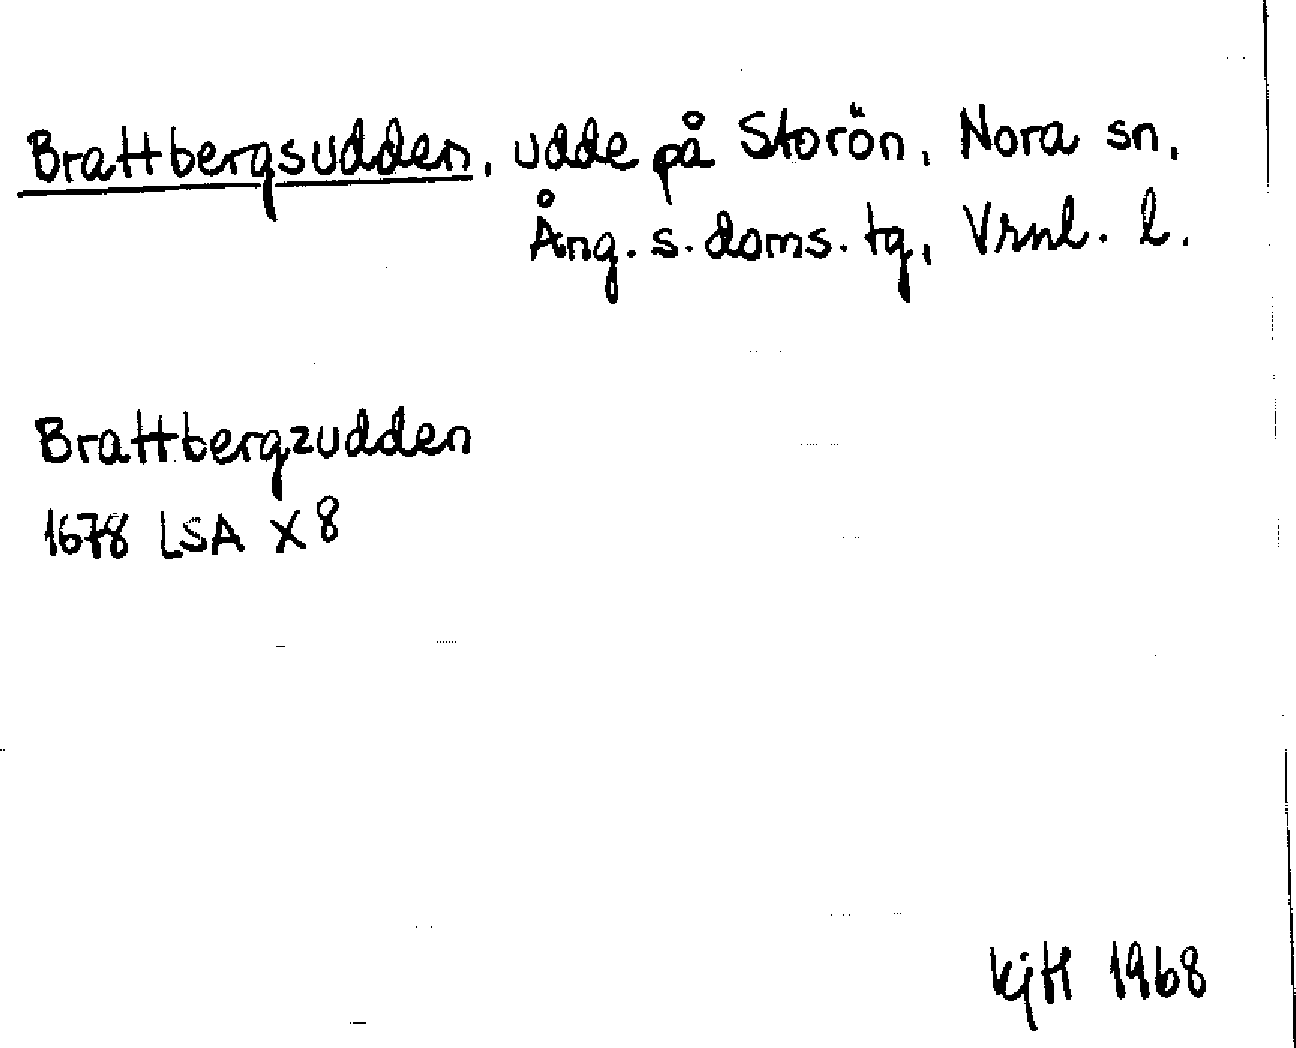 Brattbergsudden, udde på Storön, Nora sn,
Ång. s. doms. tg, Vrnl. l.
Brattbergzudden
1678 LSA X 8
KjH 1968